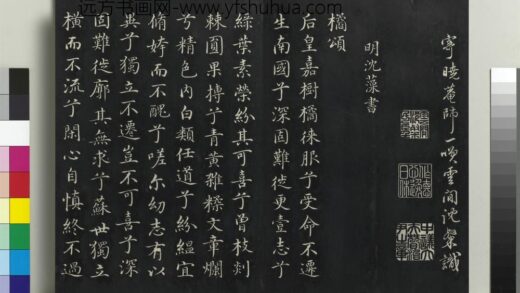 远方书画网 - www.yfshuhua.com
曉菴師一 雲間沈粲識
明沈藻書
橘頌
后皇嘉樹橘徠服兮受命不遷
生南國兮深固難徙更壹志兮
綠葉素榮紛其可喜兮曾枝剡
棘圓果摶兮青黃雜糅文章爛
兮精色內白類任道兮紛緼宜
脩姱而不醜兮嗟尔幼志有以
異兮獨立不遷豈不可喜兮深
固難徙廓其無求兮蘇世獨立
橫而不流兮閉心自慎終不過